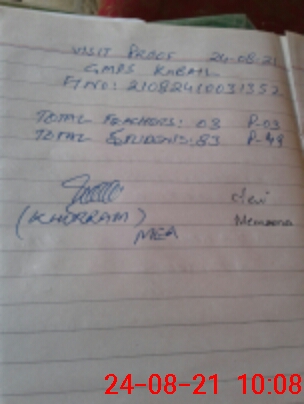 VISIT PROOF 24-08-21
GMPS KABAL
FTNO: 21082410031352
TOTAL TEACHERS: 03 P-03
TOTAL STUDENTS: 83 P-49
(KHURRAM)
MEA
24-08-21 10:08